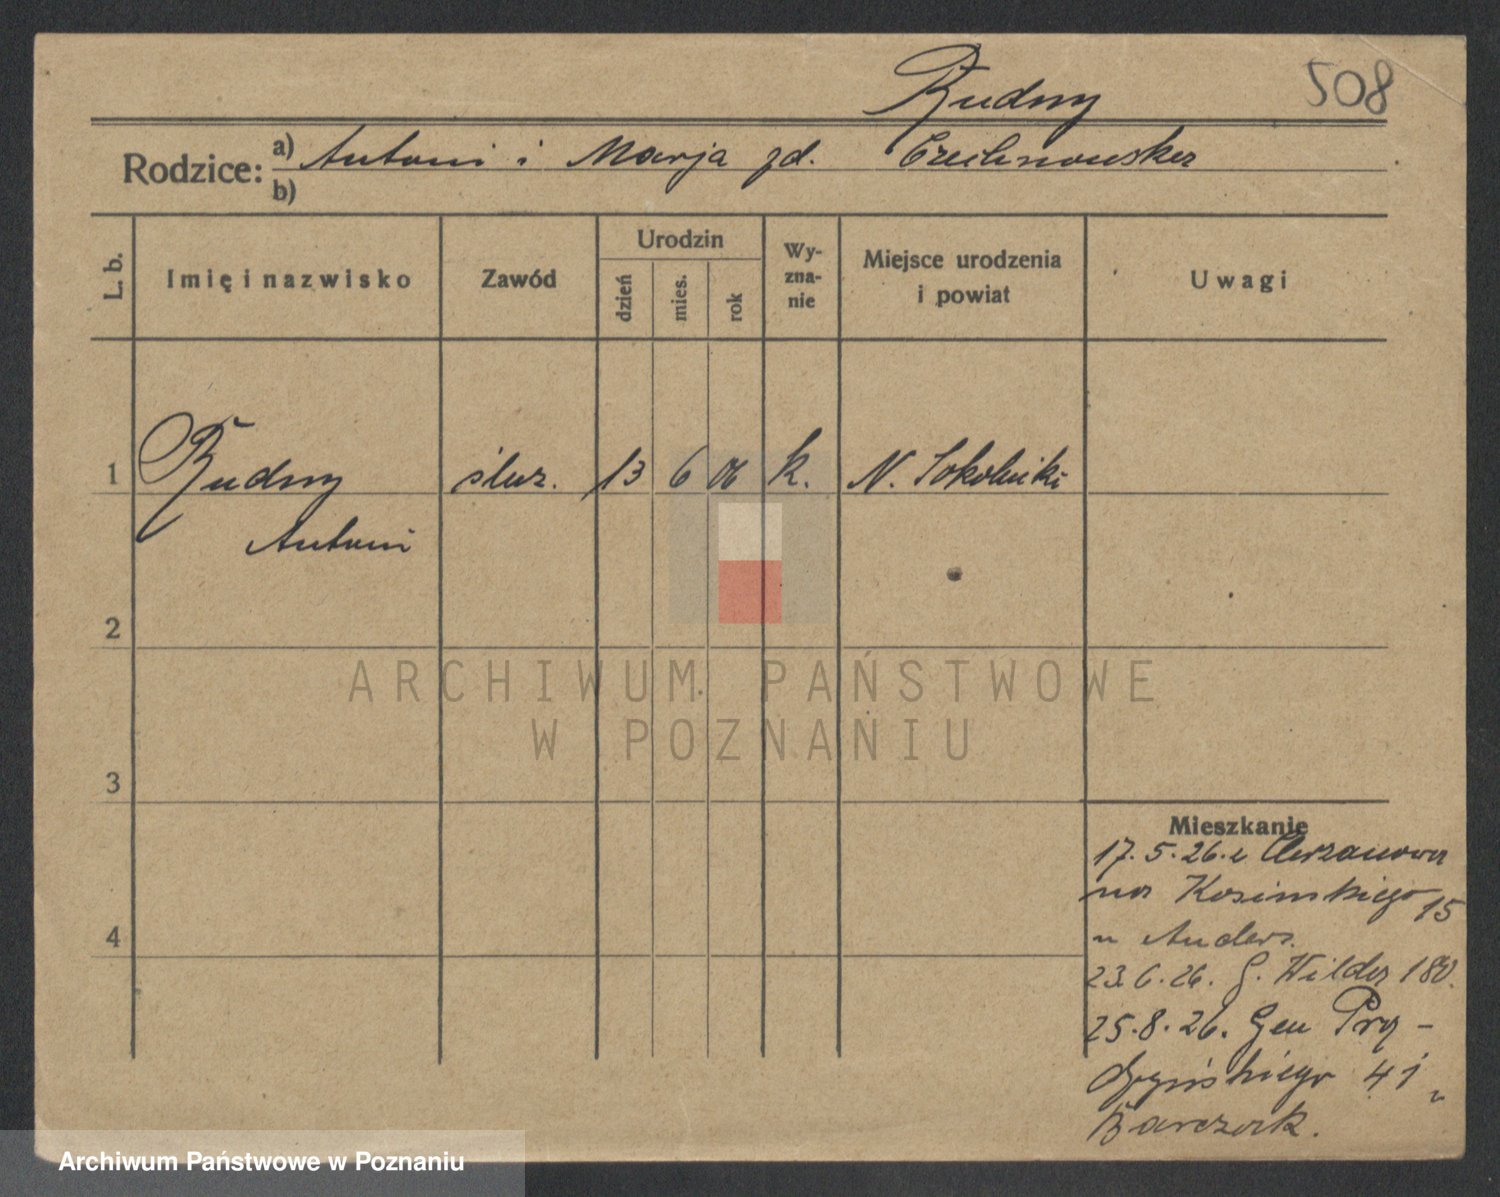 Rudny
508
Rodzice: a) Antoni i Marja zd. Czechnowska
b)
L. b.
Imię i nazwisko
Zawód
Urodzin
dzień
mies.
rok
Wy-
zna-
nie
Miejsce urodzenia
i powiat
Uwagi
1
Rudny
Antoni
ślus.
13
6
06
k.
N. Sokolniki
2
3
4
ARCHIWUM PAŃSTWOWE
W POZNANIU
Mieszkanie
17.5.26. z
na Kosińskiego 15
u Anders.
23.6.26. G. Wilda 180.
25.8.26. Gen Prą-
dzyńskiego 41 u
Barczak.
Archiwum Państwowe w Poznaniu